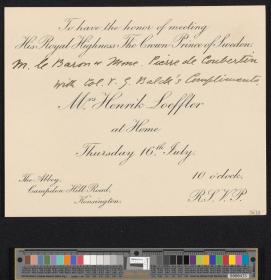 To have the honor of meeting
His Royal Highness The Crown Prince of Sweden.
M. le Baron & Mme. Pierre de Coubertin
with Col. V. G. Balck's Compliments.
Mrs Henrik Loeffler
at Home
Thursday 16th July.
The Abbey,
Campden Hill Road,
Kensington.
10 o'clock.
R.S.V.P.